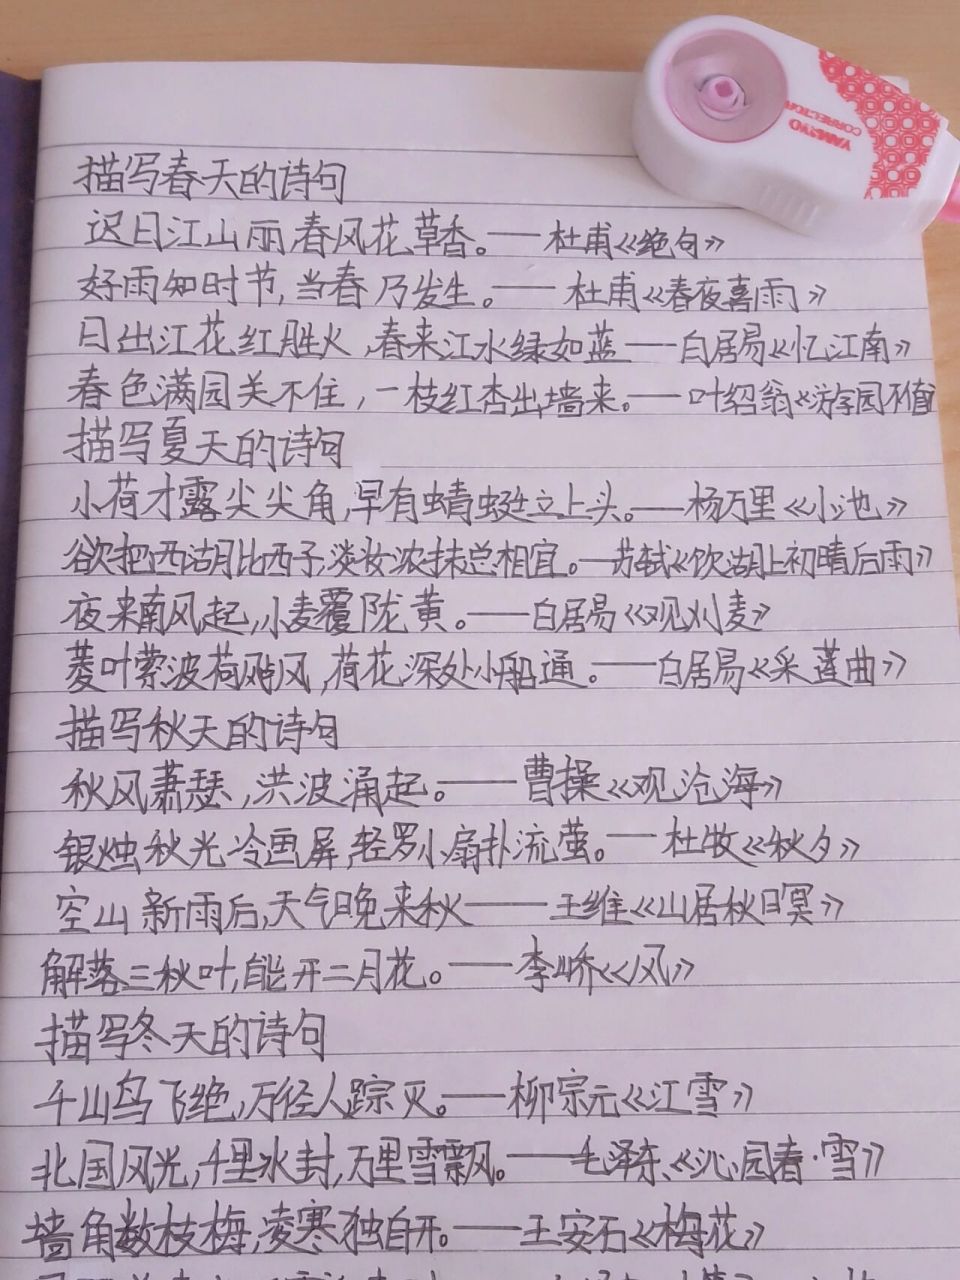 描写春天的诗句
迟日江山丽,春风花草香。——杜甫《绝句》
好雨知时节,当春乃发生。——杜甫《春夜喜雨》
日出江花红胜火,春来江水绿如蓝——白居易《忆江南》
春色满园关不住,一枝红杏出墙来。——叶绍翁《游学园不值
描写夏天的诗句
小荷才露尖尖角,早有蜻蜓立上头。——杨万里《小池》
欲把西湖比西子,淡妆浓抹总相宜。—苏轼《饮湖上初晴后雨》
夜来南风起,小麦覆陇黄。——白居易《观刈麦》
菱叶萦波荷飐风,荷花深处小船通。——白居易《采莲曲》
描写秋天的诗句
秋风萧瑟,洪波涌起。——曹操《观沧海》
银烛秋光冷画屏,轻罗小扇扑流萤。——杜牧《秋夕》
空山新雨后,天气晚来秋——王维《山居秋暝》
解落三秋叶,能开二月花。——李峤《风》
描写冬天的诗句
千山鸟飞绝,万径人踪灭。——柳宗元《江雪》
北国风光,千里冰封,万里雪飘。——毛泽东《沁园春·雪》
墙角数枝梅,凌寒独自开。——王安石《梅花》
YAMEIYO
CORRECTION